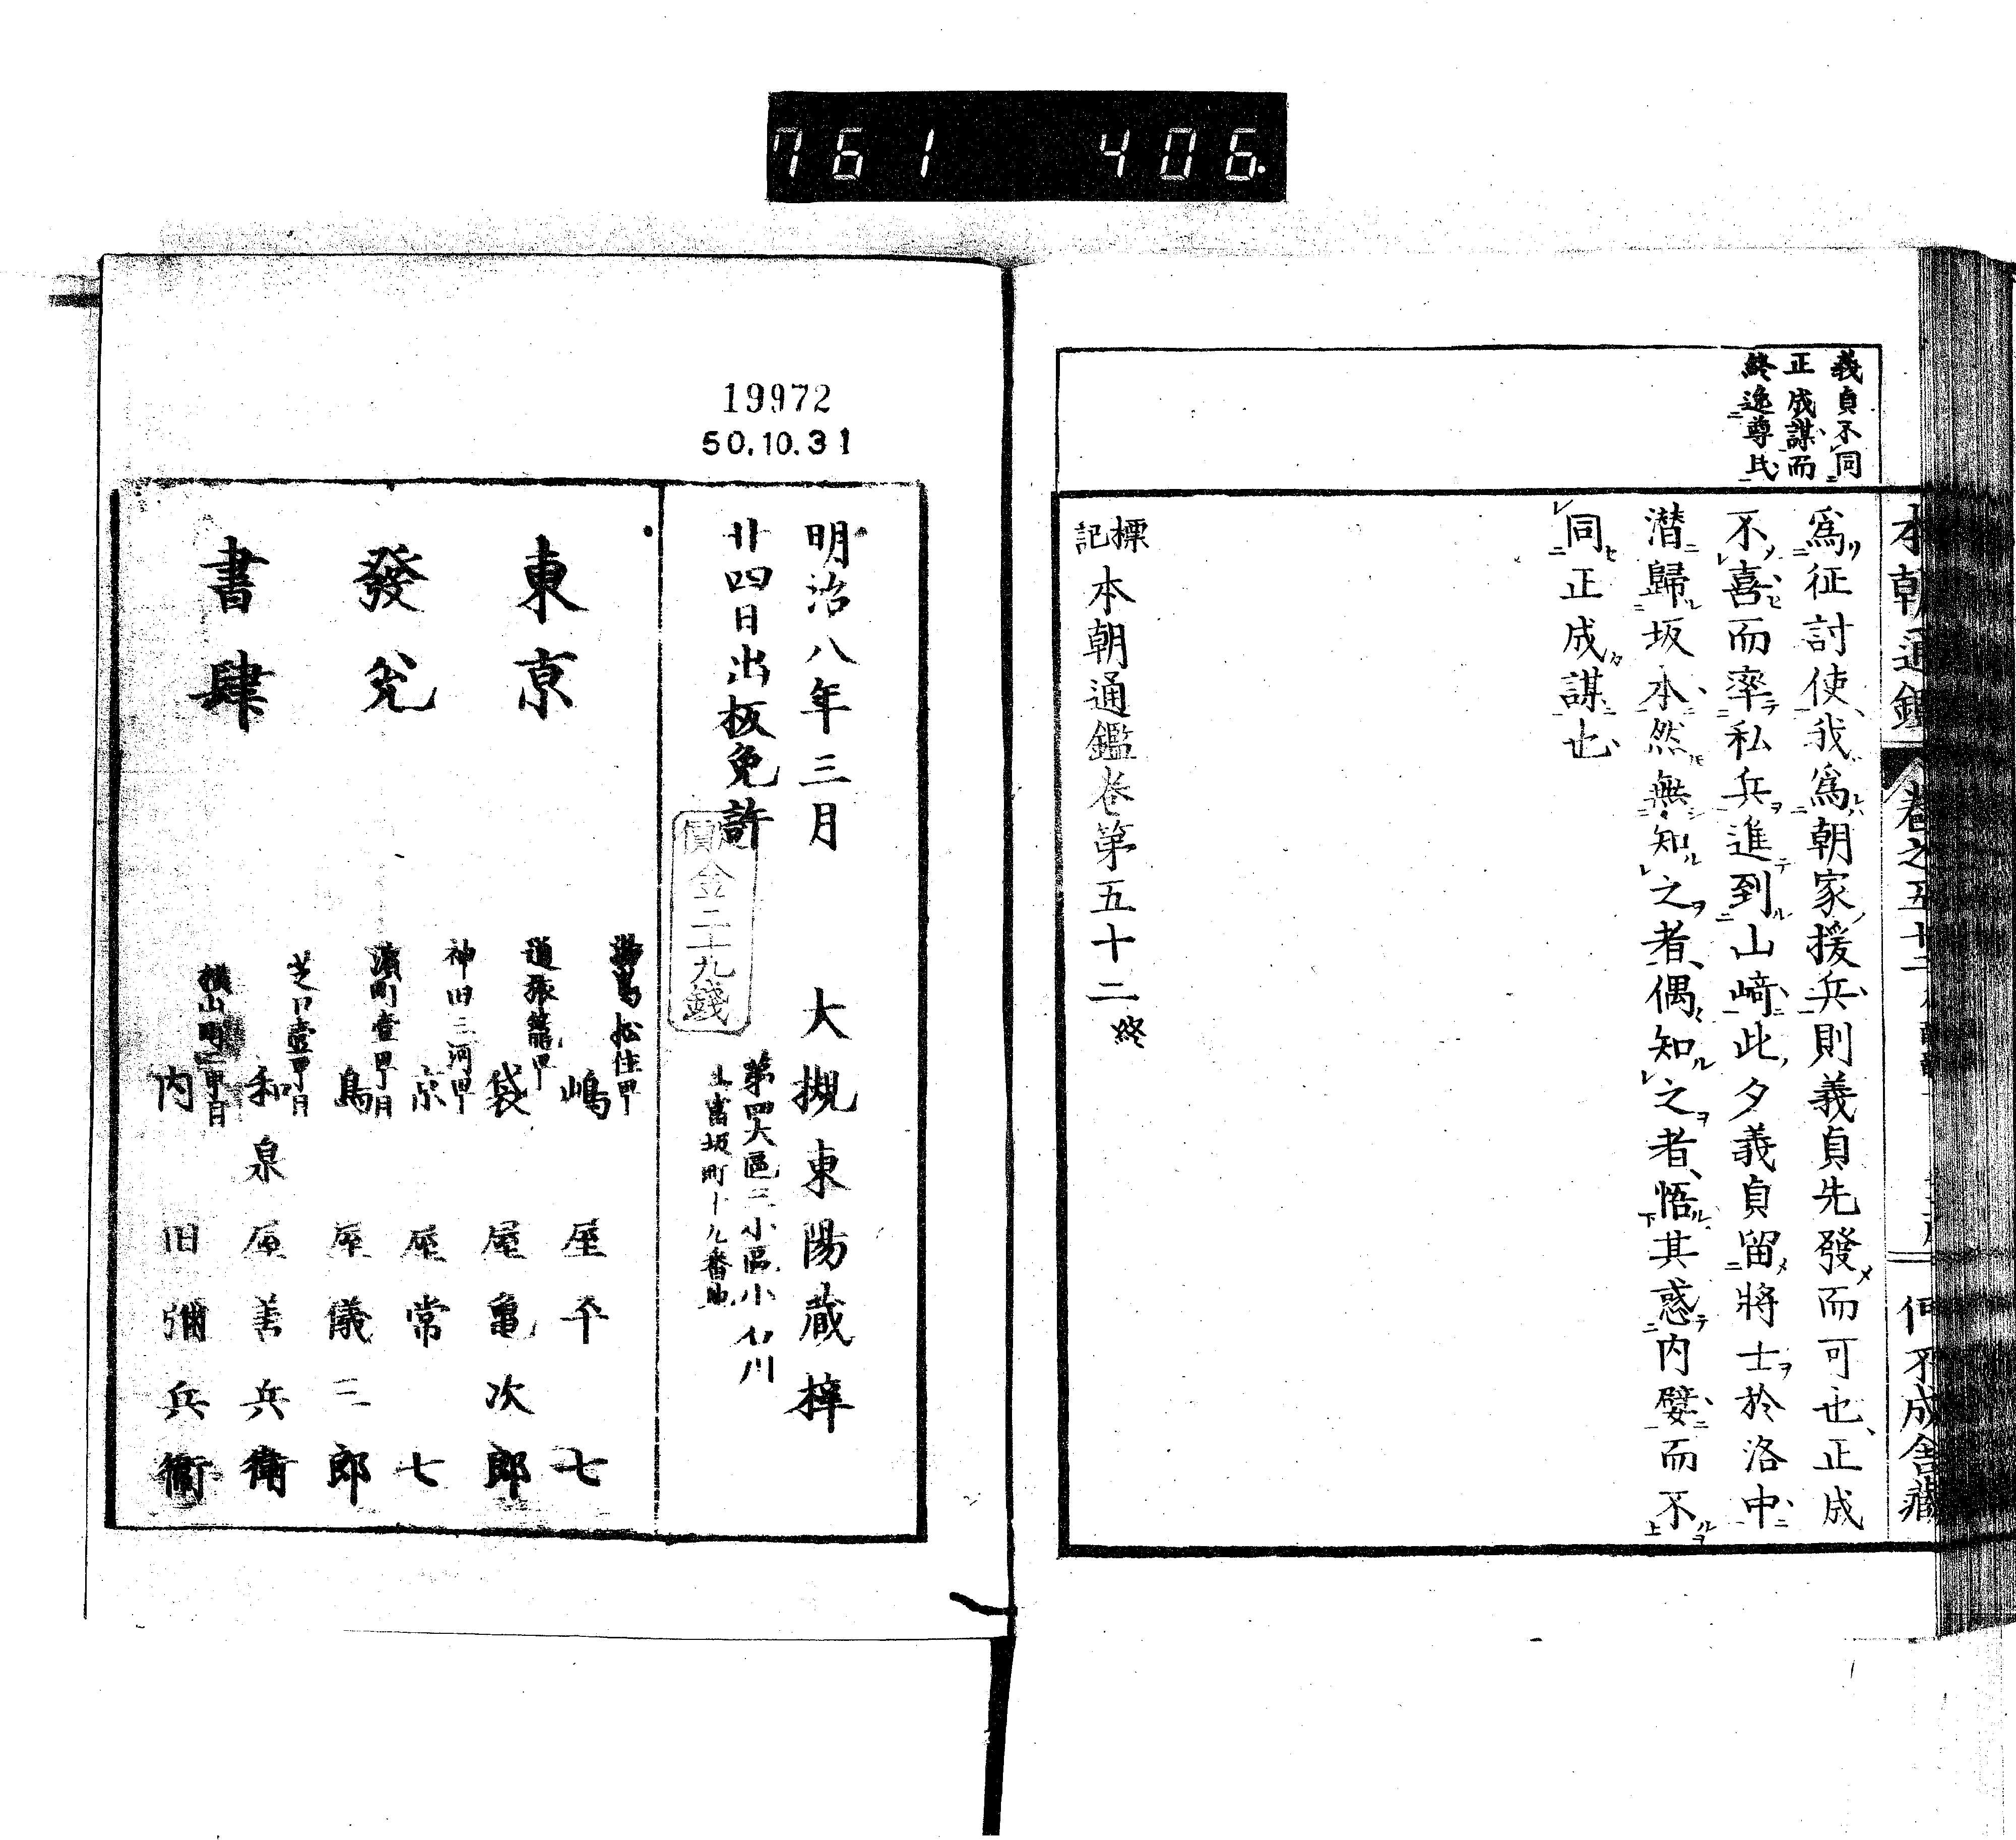 761 406.
義貞不同
正成謀而
終逸尊氏
爲征討使我爲朝家援兵則義貞先發而可也正成
不喜而率私兵進到山﨑此夕義貞留將士於洛中
潜歸坂本然無知之者偶知之者悟其惑内嬖而不
同正成謀也
標記 本朝通鑑卷第五十二 終
本朝通鑑 卷之五十二
何不成舍藏
19972
50.10.31
明治八年三月
廿四日出板免許
價金二十九錢
大槻東陽蔵梓
第四大區三小區小石川
上富坂町十九番地
東京
發兌
書肆
湯島松住町
嶋屋平七
通旅籠町
袋屋亀次郎
神田三河町
京屋常七
濱町壹丁目
島屋儀三郎
芝口壹丁目
和泉屋善兵衛
横山町一丁目
内田彌兵衛